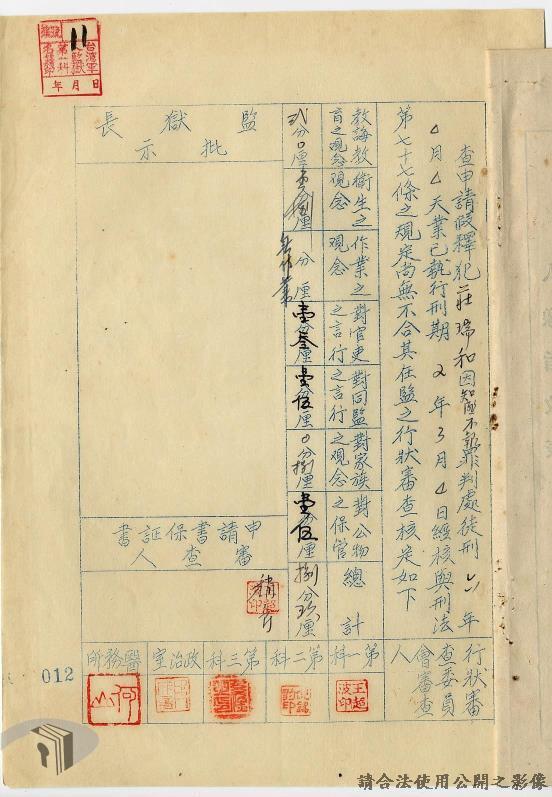 查申請假釋犯莊瑞和因知匪不報罪判處徒刑 年
月 天業已執行刑期 2年3月 日經核與刑法
第七十七條之規定尚無不合其在監之行狀審查核定如下
教誨教育之觀念
衛生之觀念
作業之觀念
對官吏之言行
對同監之言行
對家族之觀念
對公物之保管
總計
分0厘
壹分捌厘
分 厘
無作業
壹分叁厘
壹分伍厘
0分捌厘
壹分伍厘
捌分 厘
監獄長批示
申請書保証書審查人
行狀審查委員會審查人
第一科
第二科
第三科
政治室
醫務所
王超波印
何
11
年月日
012
請合法使用公開之影像